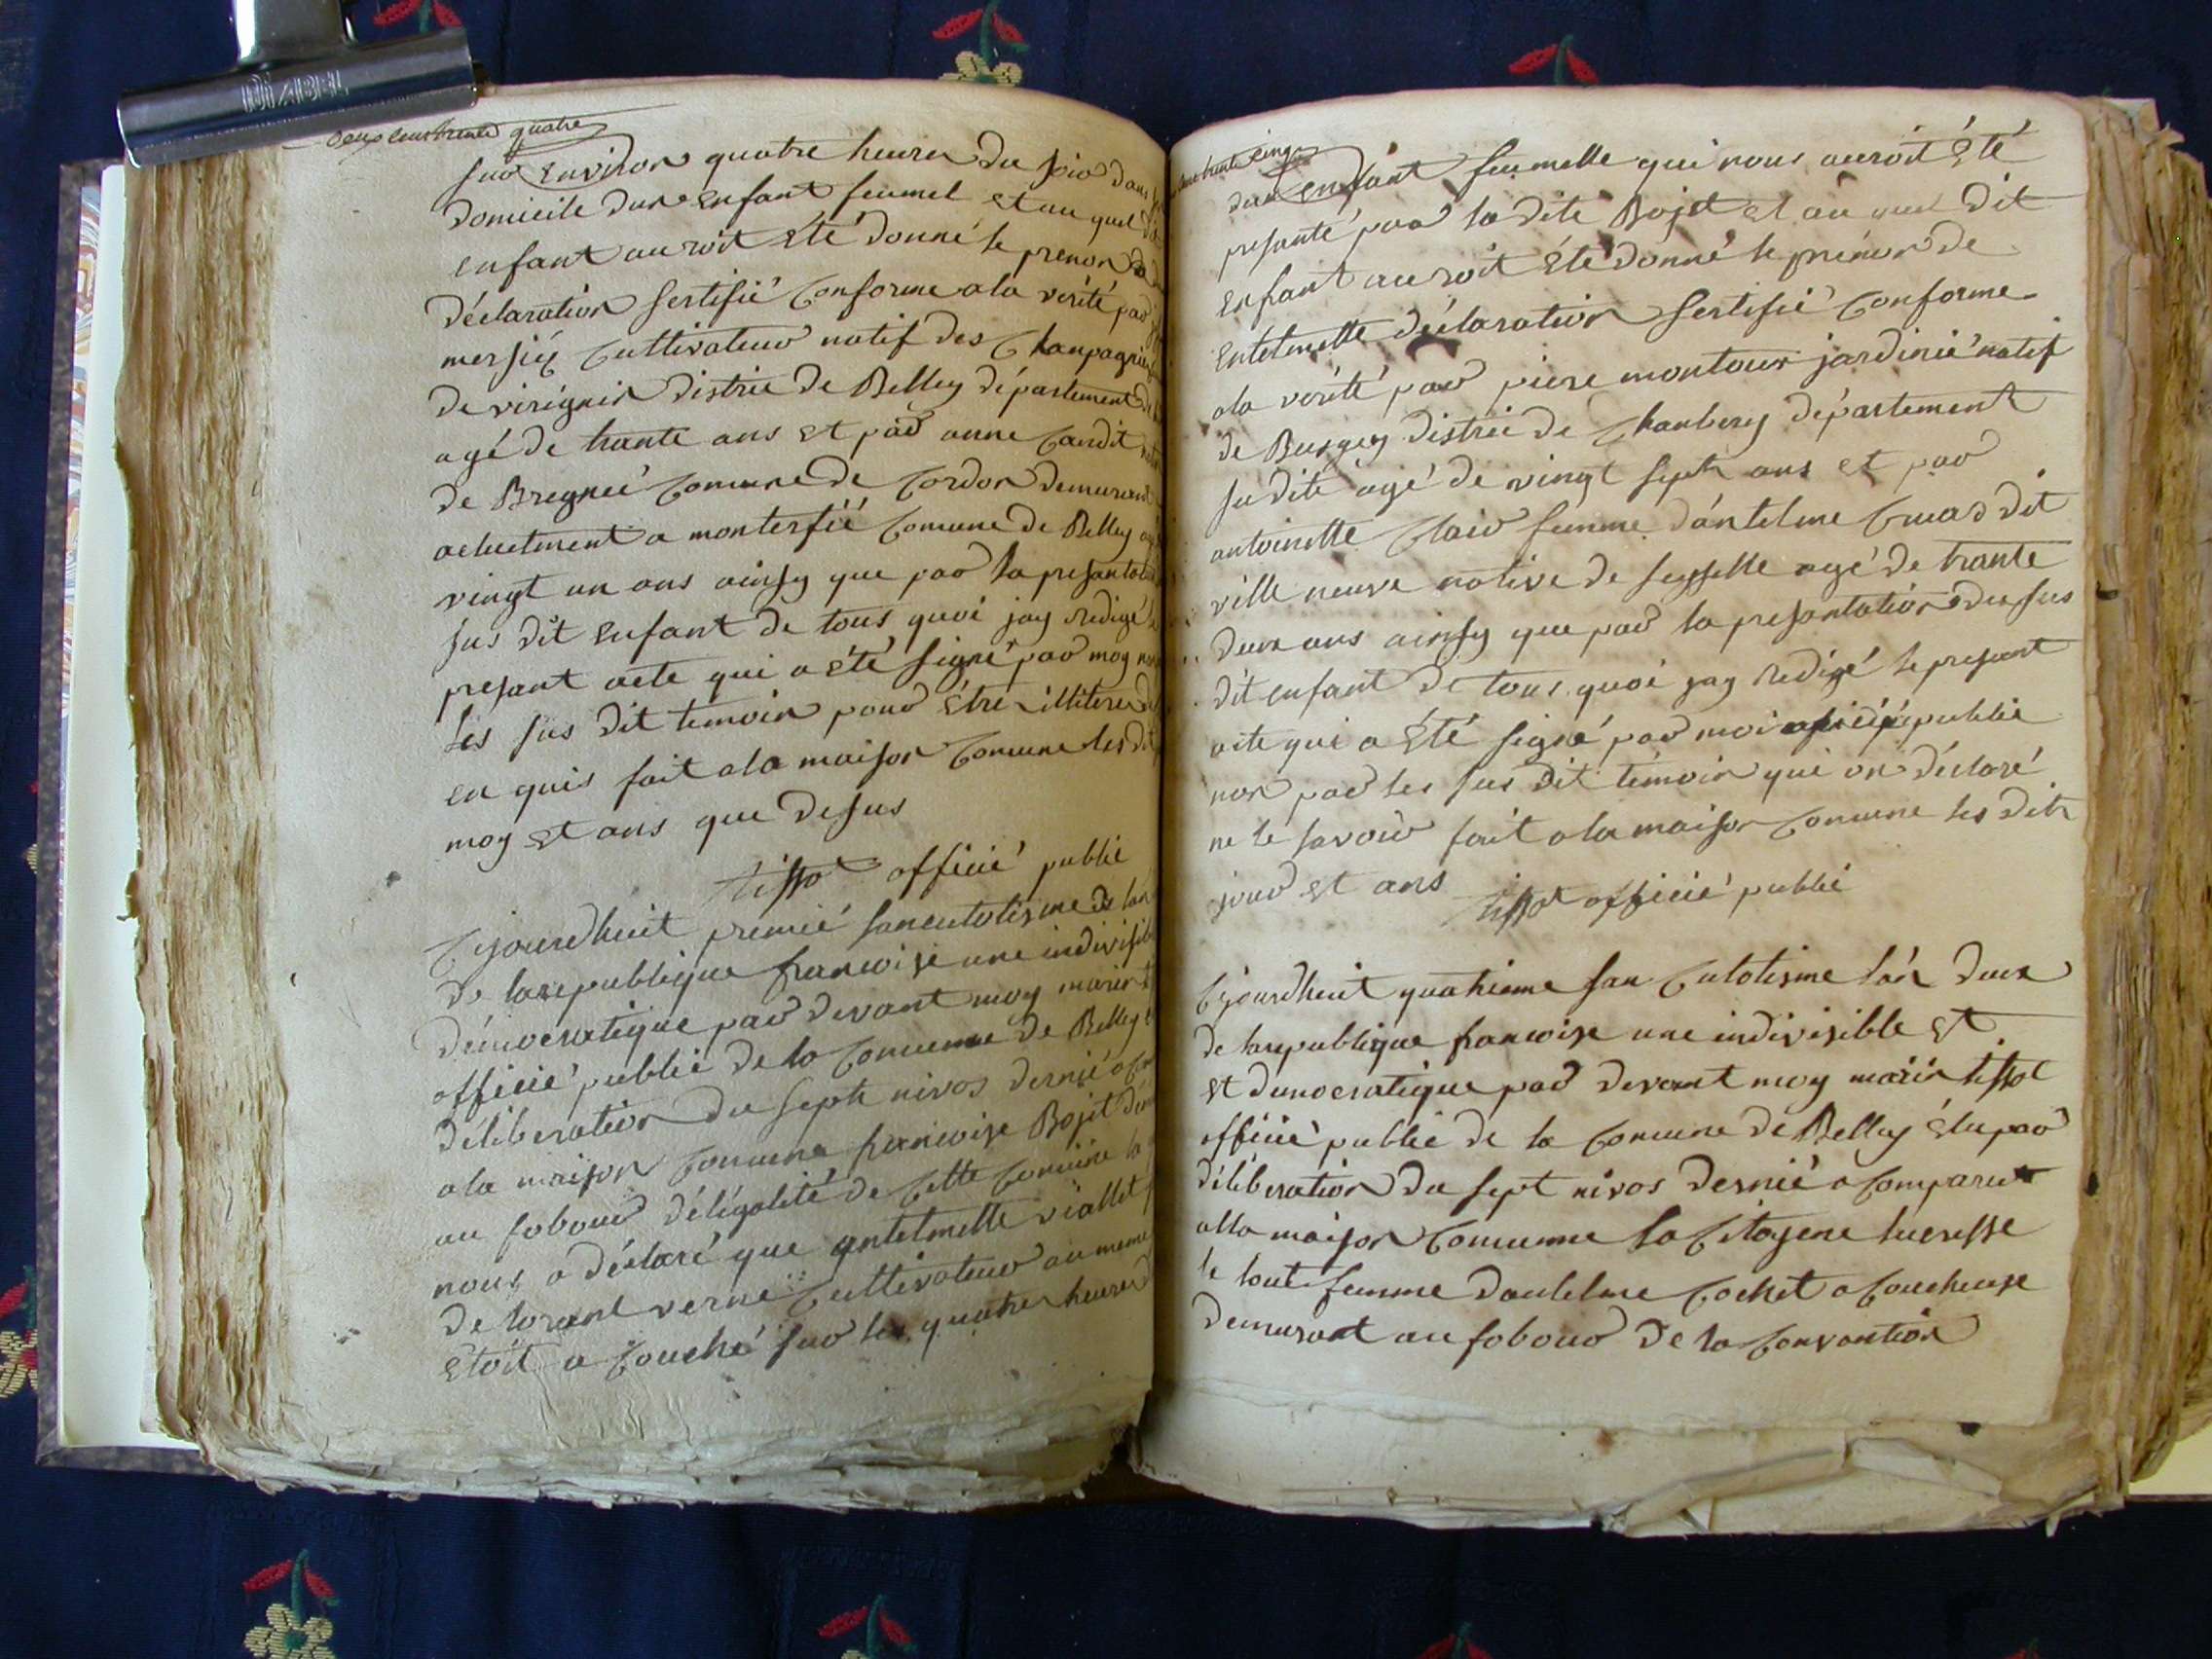 DIABEL
deux cens trente quatre
sur environ quatre heures du soir dans
domicile dun enfant feumel et au quel dit
enfant auroit été donné le prenon de
déclaration sertifié conforme a la verité par
mersié cultivateur natif des Champagnie
de virignin distric de Belley département de
agé de trante ans et par anne Candit
de Bregnié comune de Cordon demurant
actuelment a monterfié comune de Belley
vingt un ans ainsy que par la presantation
sus dit enfant de tous quoi jay redigé
presant acte qui a été signé par moy non
les sus dit temoin pour être illiteré
en quis fait a la maison comune les dit
moy et ans que desus
tissot officié public
Cejourdhuit premié sanculotisme de lan
de la republique francoise une indivisible
démocratique par devant moy marin
officié public de la comune de Belley
déliberation du septe nivos dernié a
a la maison comune francoise Bojet
au fobour délégalité de cette comune
nous a déclaré que antelmette viallet
de lorant verne cultivateur au meme
etoit a couché sur les quatre heures
trante cinq
dun enfant feumelle qui nous auroit été
presanté par la dite Bojet et au quel dit
enfant auroit été donné le prénon de
Entelmette déclaration sertifié conforme
a la verité par piere montour jardinié natif
de Burgey distric de Chanbery département
su dite agé de vingt septe ans et par
antoinette Clair femme dántelme Cuad dit
ville neuve native de seyselle agé de trante
deux ans ainsy que par la presantation du sus
dit enfant de tous quoi jay redigé le presant
acte qui a été signé par moi officié public
non par les sus dit témoin qui on déclaré
ne le savoir fait a la maison comune les dit
jour et ans
tissot officié public
Cejourdhuit quatrieme san culotisme lán deux
de la republique francoise une indivisible et
et democratique par devant moy marin tissot
officié public de la comune de Belley élu par
déliberation du sept nivos dernié a comparut
a la maison comune la citoyene lucresse
le tout femme dantelme Cochet a coucheuse
demurant au fobour de la convantion